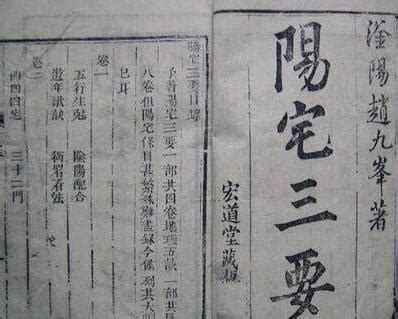 滏陽趙九峯著
陽宅三要
宏道堂藏板
陽宅三要目錄
予著陽宅三要一部共四卷地理五訣一部共
八卷但陽宅條目甚繁殊難盡錄今僅列其大
耳
卷一
五行生尅 陰陽配合
遊年歌訣 衙署看法
卷二
四宅 三十二門